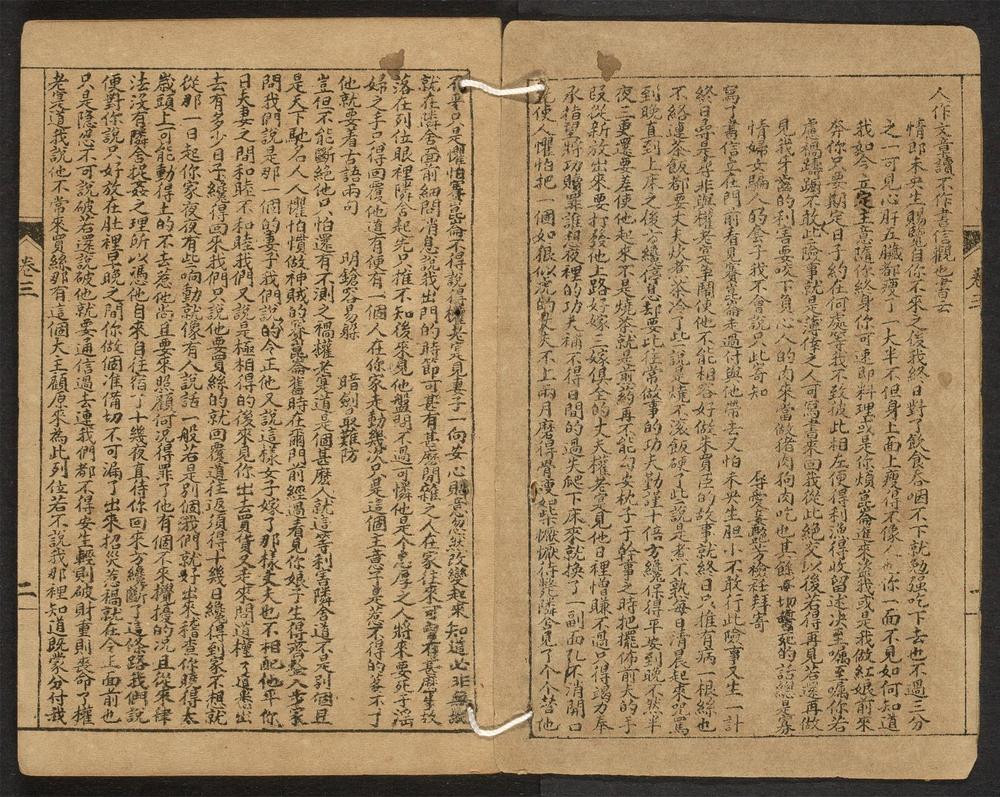 人作文章讀不作書信觀也書云
情郎未央生賜覽自你不來之後我終日對了飲食吞咽不下就勉強吃下去也不過三分
之一可見心肝五臟都變了一大半不但身上面上瘦得不像人也你一面不見如何知道
我如今立定主意隨你終身你可速即料理或是你煩崑崙進來盜我或是我做紅娘前來
奔你只要期定日子約在何處等我不致彼此相左便得利漁得收留述決至囑至囑你若
慮禍躊躇不敢此險事就是薄倖之人可寫書來回我從此絕交以後若得再見若還再做
見我牙齒的利害要咬下負心人的肉來當做猪肉狗肉吃也其餘毒切誓死的話總是寡
情婦女騙人的套子我不會說只此寄知
辱愛妾艷芳檢衽拜寄
寫了書信立在門前看見賽崑崙走過付與他帶去又怕未央生胆小不敢行此險事又生一計
終日尋是尋非與權老實爭鬧使他不能相容好做朱買臣的故事就終日只推有病一根絲也
不絡連茶飯都要丈夫炊煮茶冷了些說是燒不滾飯硬了些說是煮不熟每日清晨起來咒罵
到晚直到上床之後方纔停息却要比往常做事的功夫勤謹十倍方纔保得平安到晚不然半
夜三更還要差使他起來不是燒茶就是煎藥再不能勾安枕子于幹事之時把擺佈前夫的手
段從新放出來要打發他上路好嫁三嫁俱全的大夫權老實見他日裡憎嫌不過只得竭力奉
承指望將功贖罪誰想夜裡的功夫補不得日間的過失爬下床來就換了一副面孔不消開口
先使人懼怕把一個如狼似虎的丈夫不上兩月磨得骨瘦如柴懨懨待斃隣舍見了個個替他
不平只是懼怕賽崑崙不得說得權老實見妻子一向安心貼意忽然改變起來知道必非無故
就在隣舍面前細問消息說我出門的時節可甚有甚麽閒雜之人在家往來可曾有甚麽事故
落在列位眼裡隣舍起先只推不知後來見他盤問不過可憐他是個忠厚之人將來要死于淫
婦之手只得回覆他道有便有一個人在你家走動幾次只是這個主意了是惹不得的惹不了
他就要着古語兩句　　明鎗容易躱　　暗劍最難防
豈但不能斷絕他只怕還有不測之禍權老實道是個甚麽人就這等利害隣舍道不是別個且
是天下馳名人人懼怕慣做神賊的賽崑崙舊時在爾門前經過看見你娘子生得齊整入步來
問我們說是那一個的妻子我們說的令正他又說這樣女子嫁了那樣丈夫也不相配他平
日夫妻之間和睦不和睦我們又說是極相得的後來見你出去買貨又走來問道權了道某出
去有多少日子纔得回來我們只說他要買絲的就回覆道往返須得十幾日纔得到家不想就
從那一日起你家夜夜有些响動就像有人說話一般若是別個我們就好出來稽查你曉得太
歲頭上可能動得土的不去惹他尚且要來照顧何況得罪了他有個不來攪擾的况且從來律
法沒有隣舍捉姦之理所以憑他自來自往宿了十幾夜直待你回來方纔斷了這條路我們說
便對你說只好放在肚裡早晚之間你做個准備切不可漏了出來招災惹禍就在令正面前也
只是隱忍不可說破若還說破他就要通信過去連我們都不得安生輕則破財重則喪命了權
老實道我說他不常來買絲那有這個大主顧原來為此列位若不說我那裡知道既蒙分付我
卷三
二
卷三